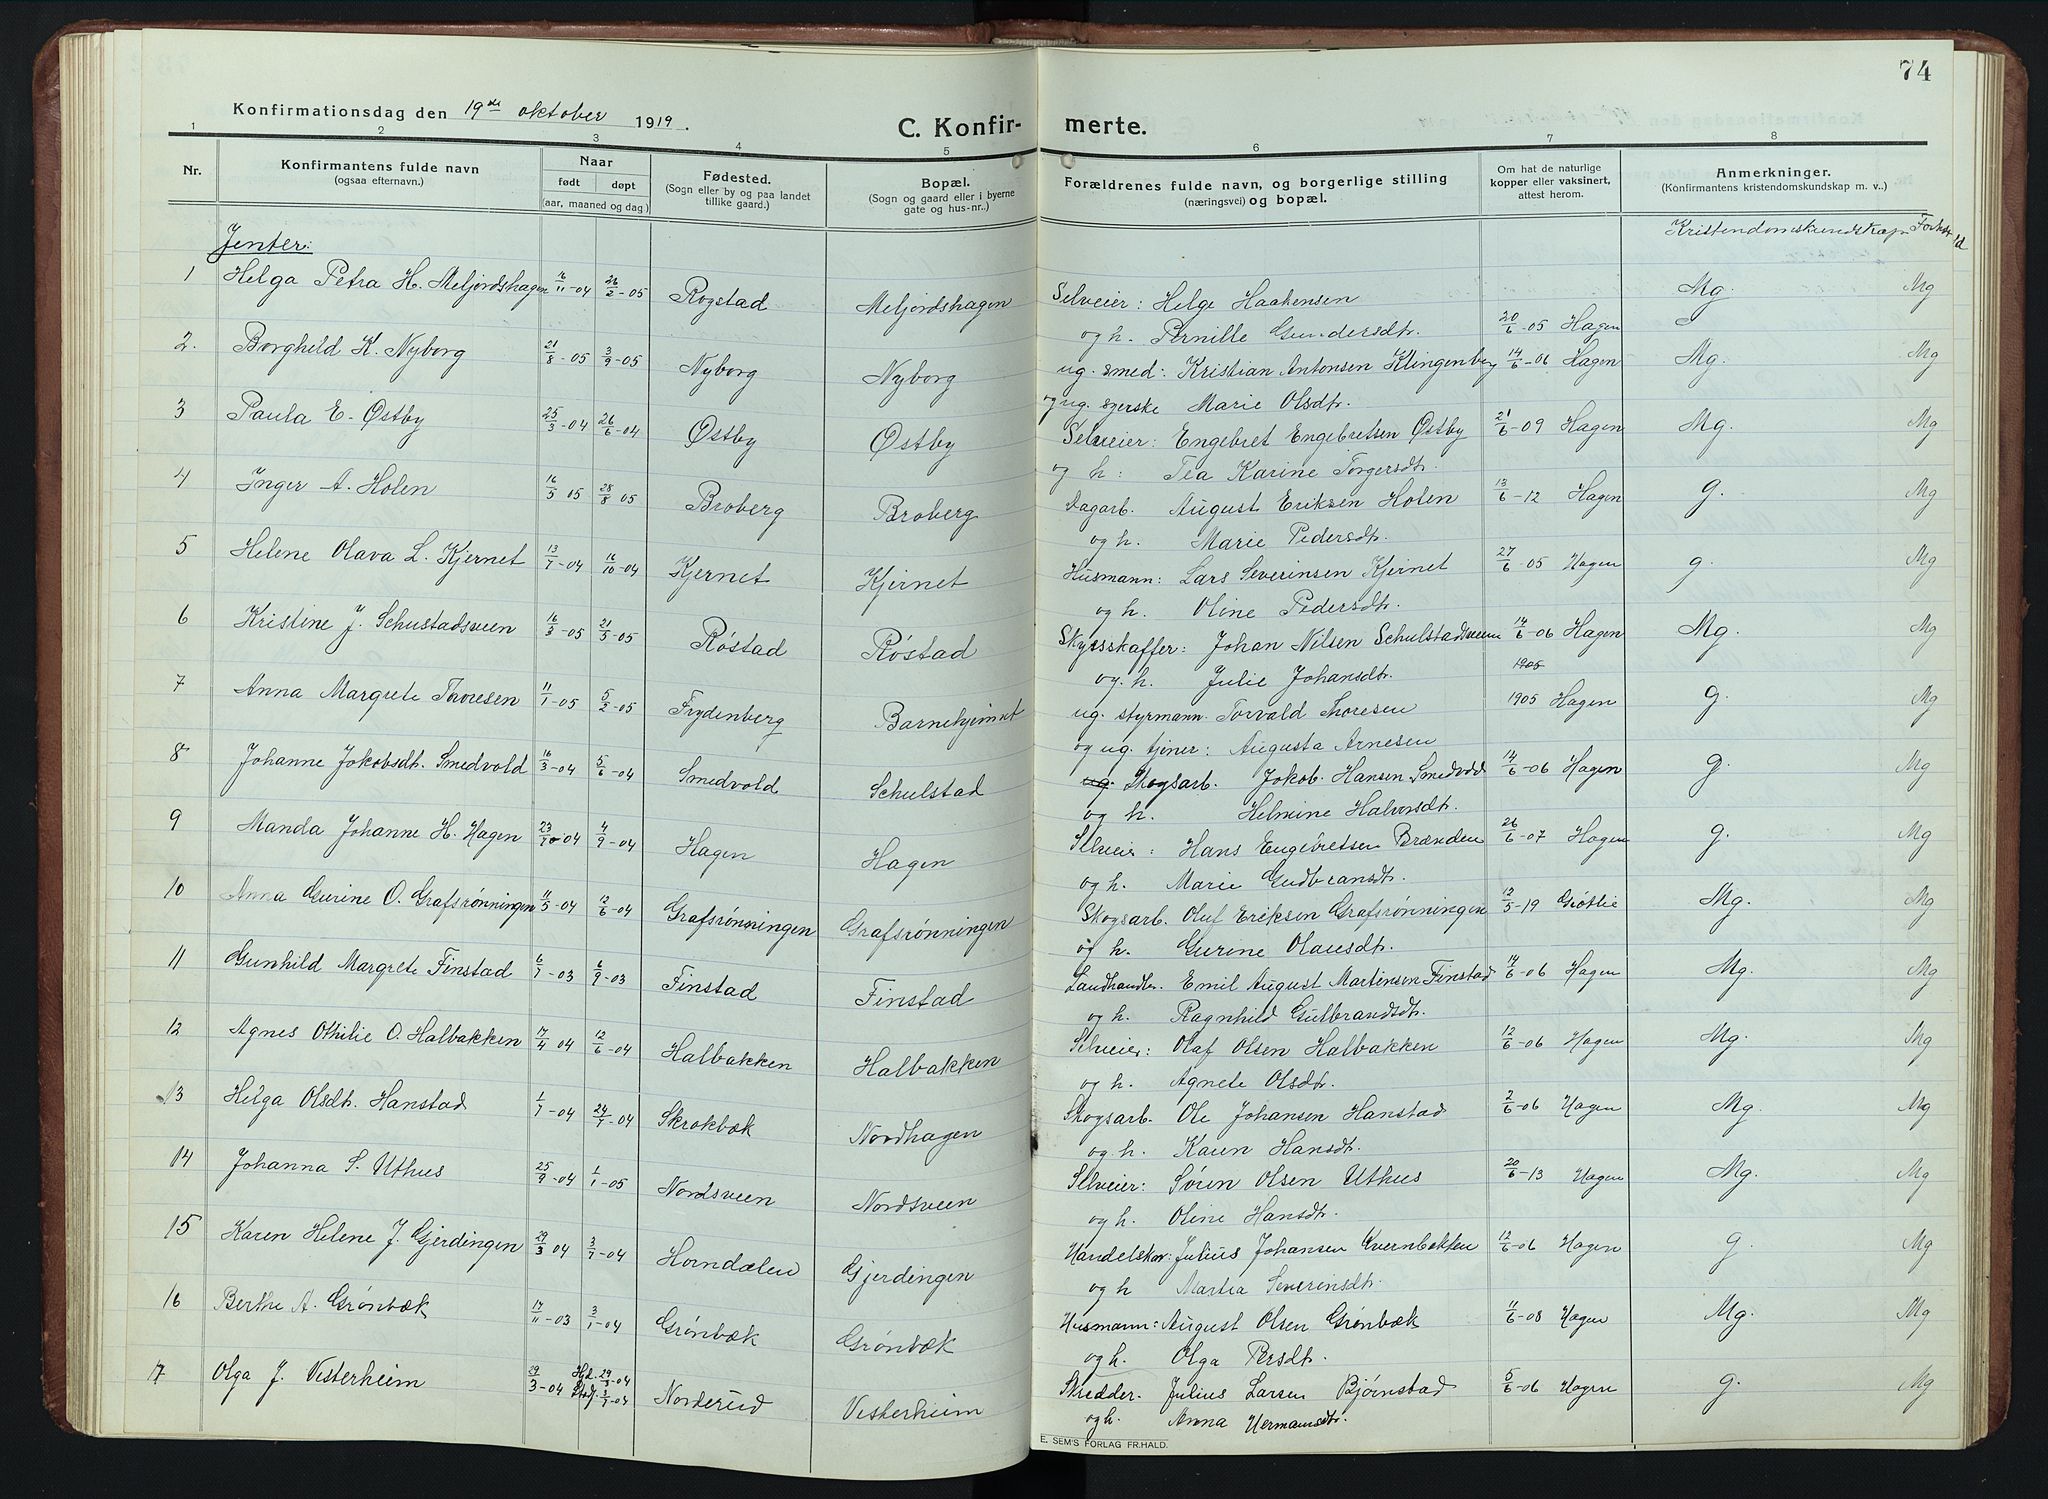 74
Konfirmationsdag den 19de oktober 1919.
C. Konfir- merte.
1 2 3 4 5 6 7 8
Nr.
Konfirmantens fulde navn
(ogsaa efternavn.)
Naar
født døpt
(aar, maaned og dag)
Fødested.
(Sogn eller by og paa landet
tillike gaard.)
Bopæl.
(Sogn og gaard eller i byerne
gate og hus-nr.)
Forældrenes fulde navn, og borgerlige stilling
(næringsvei) og bopæl.
Om hat de naturlige
kopper eller vaksinert,
attest herom.
Anmerkninger.
(Konfirmantens kristendomskundskap m. v..)
Kristendomskundskap
Jenter:
1 Helga Petra H. Meljordshagen 16/11-04 26/2-05 Rogstad Meljordshagen Selveier: Helge Haakensen Mg. Mg
og h. Pernille Gundersdtr. 20/6-05 Hagen
2. Borghild K. Nyborg 21/8-05 3/9-05 Nyborg Nyborg ug. smed: Kristian Antonsen Klingenberg 14/6-06 Hagen Mg. Mg
og ug. syerske Marie Olsdtr.
3 Paula E. Østby 25/3-04 26/6-04 Østby Østby Selveier: Engebret Engebretsen Østby 21/6-09 Hagen Mg. Mg
og h: Tea Karine Torgersdtr.
4 Inger A. Holen 16/5 05 28/8 05 Broberg Broberg Dagarb. August Eriksen Holen 13/6-12 Hagen g. Mg
og h. Marie Pedersdtr.
5 Helene Olava L. Kjernet 13/7-04 16/10-04 Kjernet Kjernet Husmann: Lars Severinsen Kjernet 27/6-05 Hagen g. Mg
og h. Oline Pedersdtr.
6 Kristine J. Schustadsveen 16/3-05 21/5-05 Røstad Røstad Skysskaffer: Johan Nilsen Schulstadsveen 14/6-06 Hagen Mg. Mg
og. h. Julie Johansdtr. 1905
7 Anna Margrete Thoresen 11/1-05 5/2-05 Frydenberg Barnehjemmet ug. styrmann. Torvald Thoresen 1905 Hagen g. Mg
og ug. tjener: Augusta Arnesen
8 Johanne Jokobsdt. Smedvold 16/3-04 5/6-04 Smedvold Schulstad ug. Skogsarb. Jokob. Hansen Smedvold 14/6-06 Hagen g. Mg
og h. Helmine Halvorsdtr.
9 Manda Johanne H. Hagen 23/7-04 4/9-04 Hagen Hagen Selveier: Hans Engebretsen Brænden 26/6-07 Hagen g. Mg
og h. Marie Gudbransdtr.
10 Anna Gurine O. Grafsrønningen 11/5-04 12/6-04 Grafsrønningen Grafsrønningen Skogsarb. Oluf Eriksen Grafsrønningen 12/5-19 Gjøtlie Mg. Mg
og h. Gurine Olausdtr.
11 Gunhild Margrete Finstad 6/7-03 6/9-03 Finstad Finstad Landhandler. Emil August Martinsen Finstad 14/6-06 Hagen Mg. Mg
og h. Ragnhild Gulbrandsdtr.
12 Agnes Othilie O. Halbakken 17/4 04 12/6-04 Halbakken Halbakken Selveier: Olaf Olsen Halbakken 12/6-06 Hagen Mg. Mg
og h. Agnete Olsdtr.
13 Helga Olsdtr. Hanstad 1/7-04 24/7-04 Skrokbæk Nordhagen Skogsarb. Ole Johansen Hanstad 2/6-06 Hagen Mg. Mg
og h. Karen Hansdtr.
14 Johanna S. Uthus 25/9-04 1/1-05 Nordsveen Nordsveen Selveier: Søren Olsen Uthus 20/6-13 Hagen Mg. Mg
og h. Oline Hansdtr.
15 Karen Helene J. Gjerdingen 29/3 04 3/7-04 Horndalen Gjerdingen Handelskar: Julius Johansen Kvernbekken 12/6-06 Hagen g. Mg
og h Martia Severinsdtr.
16 Berthe A. Grønbæk 17/11-03 3/1-04 Grønbæk Grønbæk Husmann: August Olsen Grønbæk 11/6-08 Hagen Mg. Mg
og h. Olga Persdtr.
17 Olga J. Vesterheim 29/3-04 Hjd. 29/3-04 Stadf. 3/7-04 Norderud Vesterheim Skredder. Julius Larsen Bjørnstad 5/6-06 Hagen g. Mg
og h. Anna Hermansdtr.
E. SEM'S FORLAG FR.HALD.